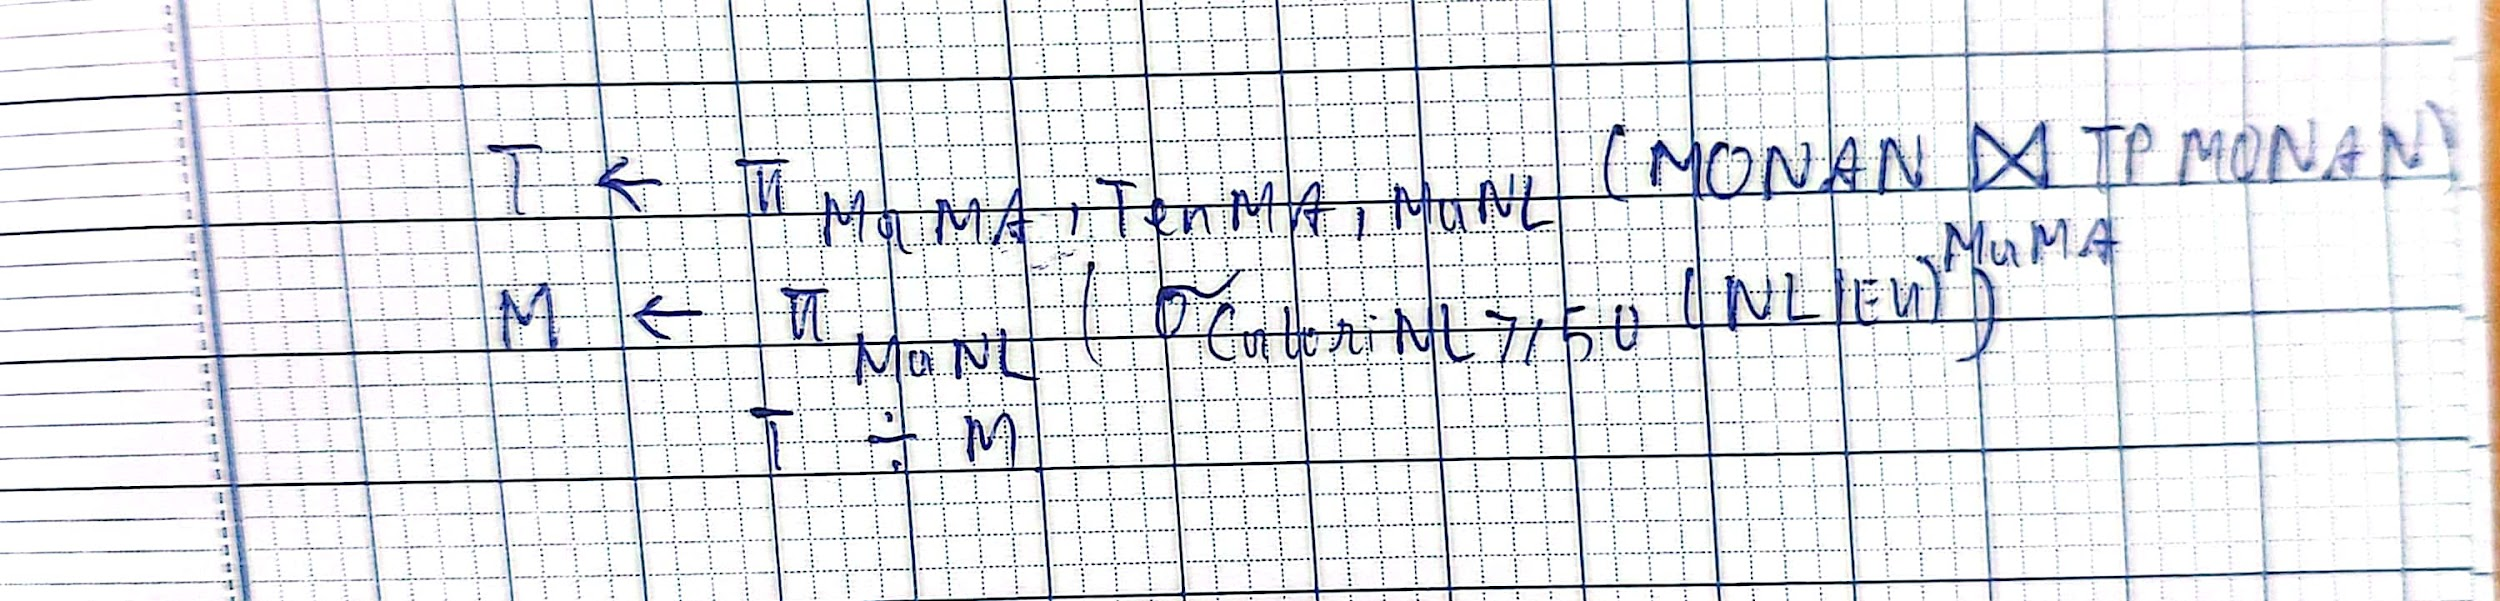 T ← π MaMA, TenMA, MaNL (MONAN ⋈ TPMONAN)
MaMA
M ← π MaNL (σ CaloriNL ≥ 50 (NLIEU))
T ÷ M